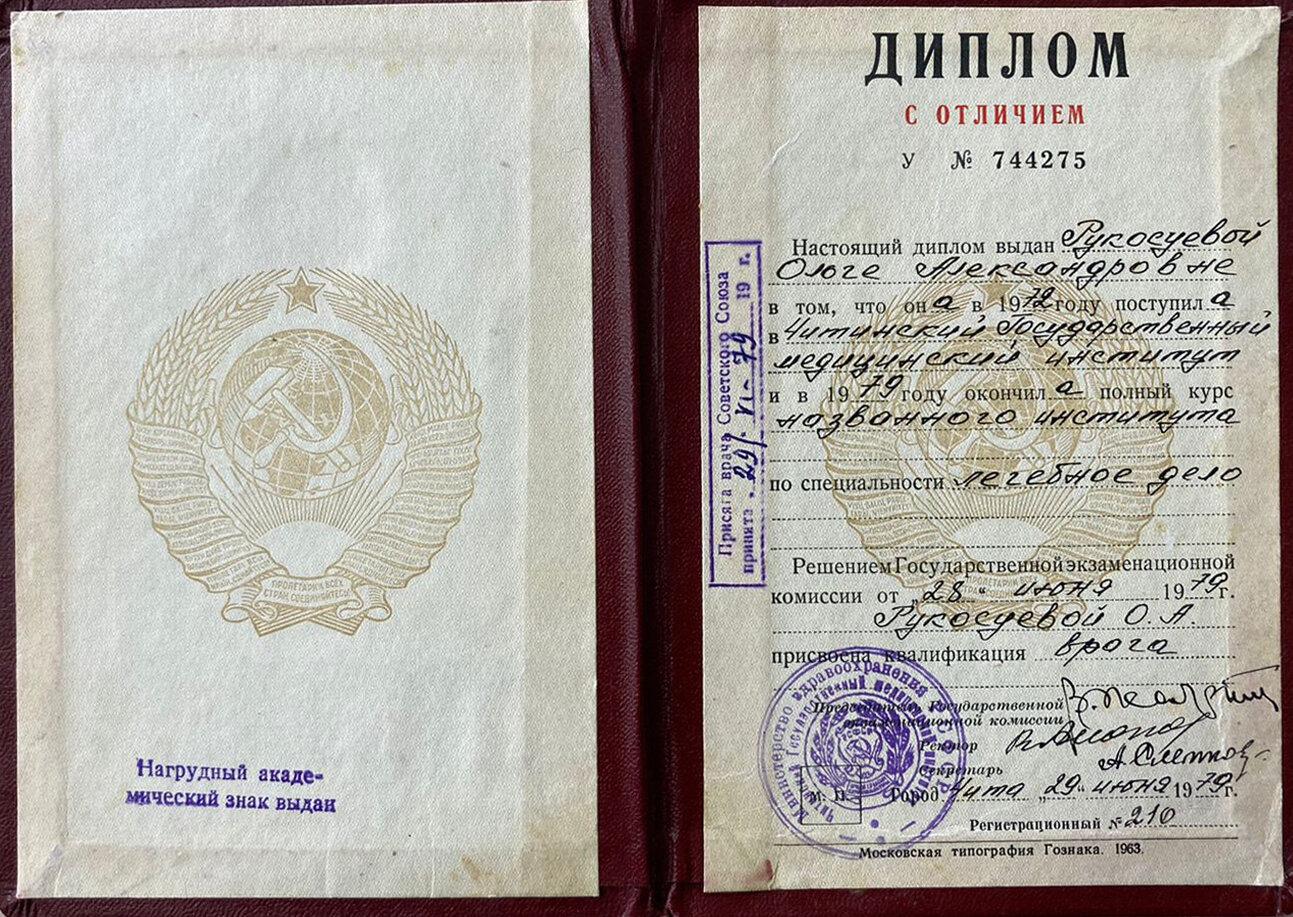 ПРОЛЕТАРИИ ВСЕХ
СТРАН СОЕДИНЯЙТЕСЬ!
Нагрудный акаде-
мический знак выдан
ДИПЛОМ
С ОТЛИЧИЕМ
У № 744275
Присяга врача Советского Союза
принята „29" VI - 79 19 г.
Настоящий диплом выдан Рукосуевой
Ольге Александровне
в том, что он а в 1972 году поступил а
в Читинский Государственный
медицинский институт
и в 1979 году окончил а полный курс
названного института
по специальности лечебное дело
Решением Государственной экзаменационной
комиссии от „28" июня 1979 г.
Рукосуевой О. А.
присвоена квалификация врача
Председатель Государственной
экзаменационной комиссии
Ректор
Секретарь
М. П.
Город Чита „29" июня 1979 г.
Регистрационный № 210
Московская типография Гознака. 1963.
Министерство здравоохранения РСФСР
Читинский Государственный медицинский институт